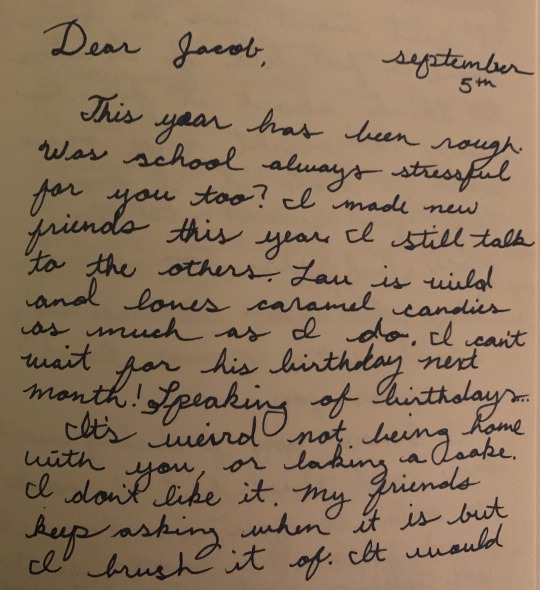 Dear Jacob,
september
5th
This year has been rough.
Was school always stressful
for you too? I made new
friends this year. I still talk
to the others. Lau is wild
and loves caramel candies
as much as I do. I can't
wait for his birthday next
month! Speaking of birthdays...
It's weird not being home
with you, or baking a cake.
I don't like it. My friends
keep asking when it is but
I brush it of. It would